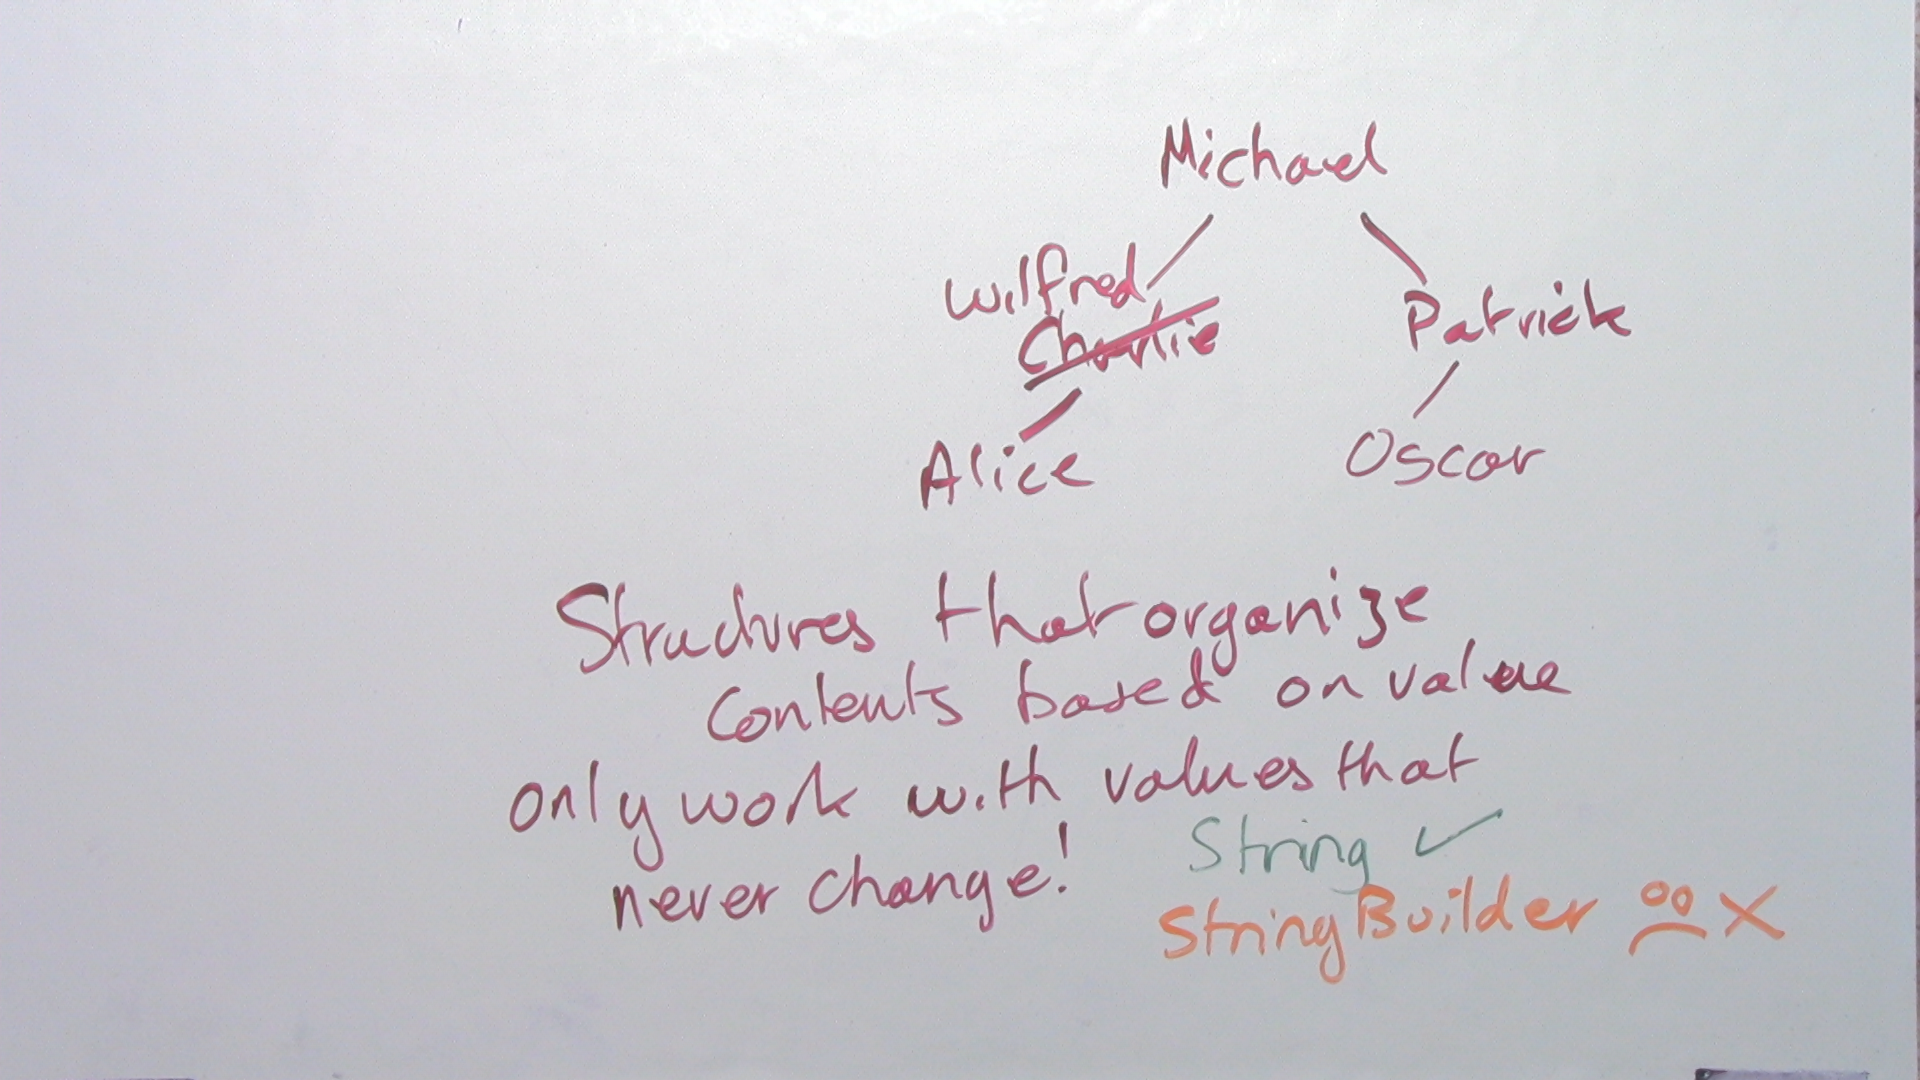 Michael
Wilfred
Charlie
Patrick
Alice
Oscar
Structures that organize
contents based on value
only work with values that
never change!
String ✓
StringBuilder X